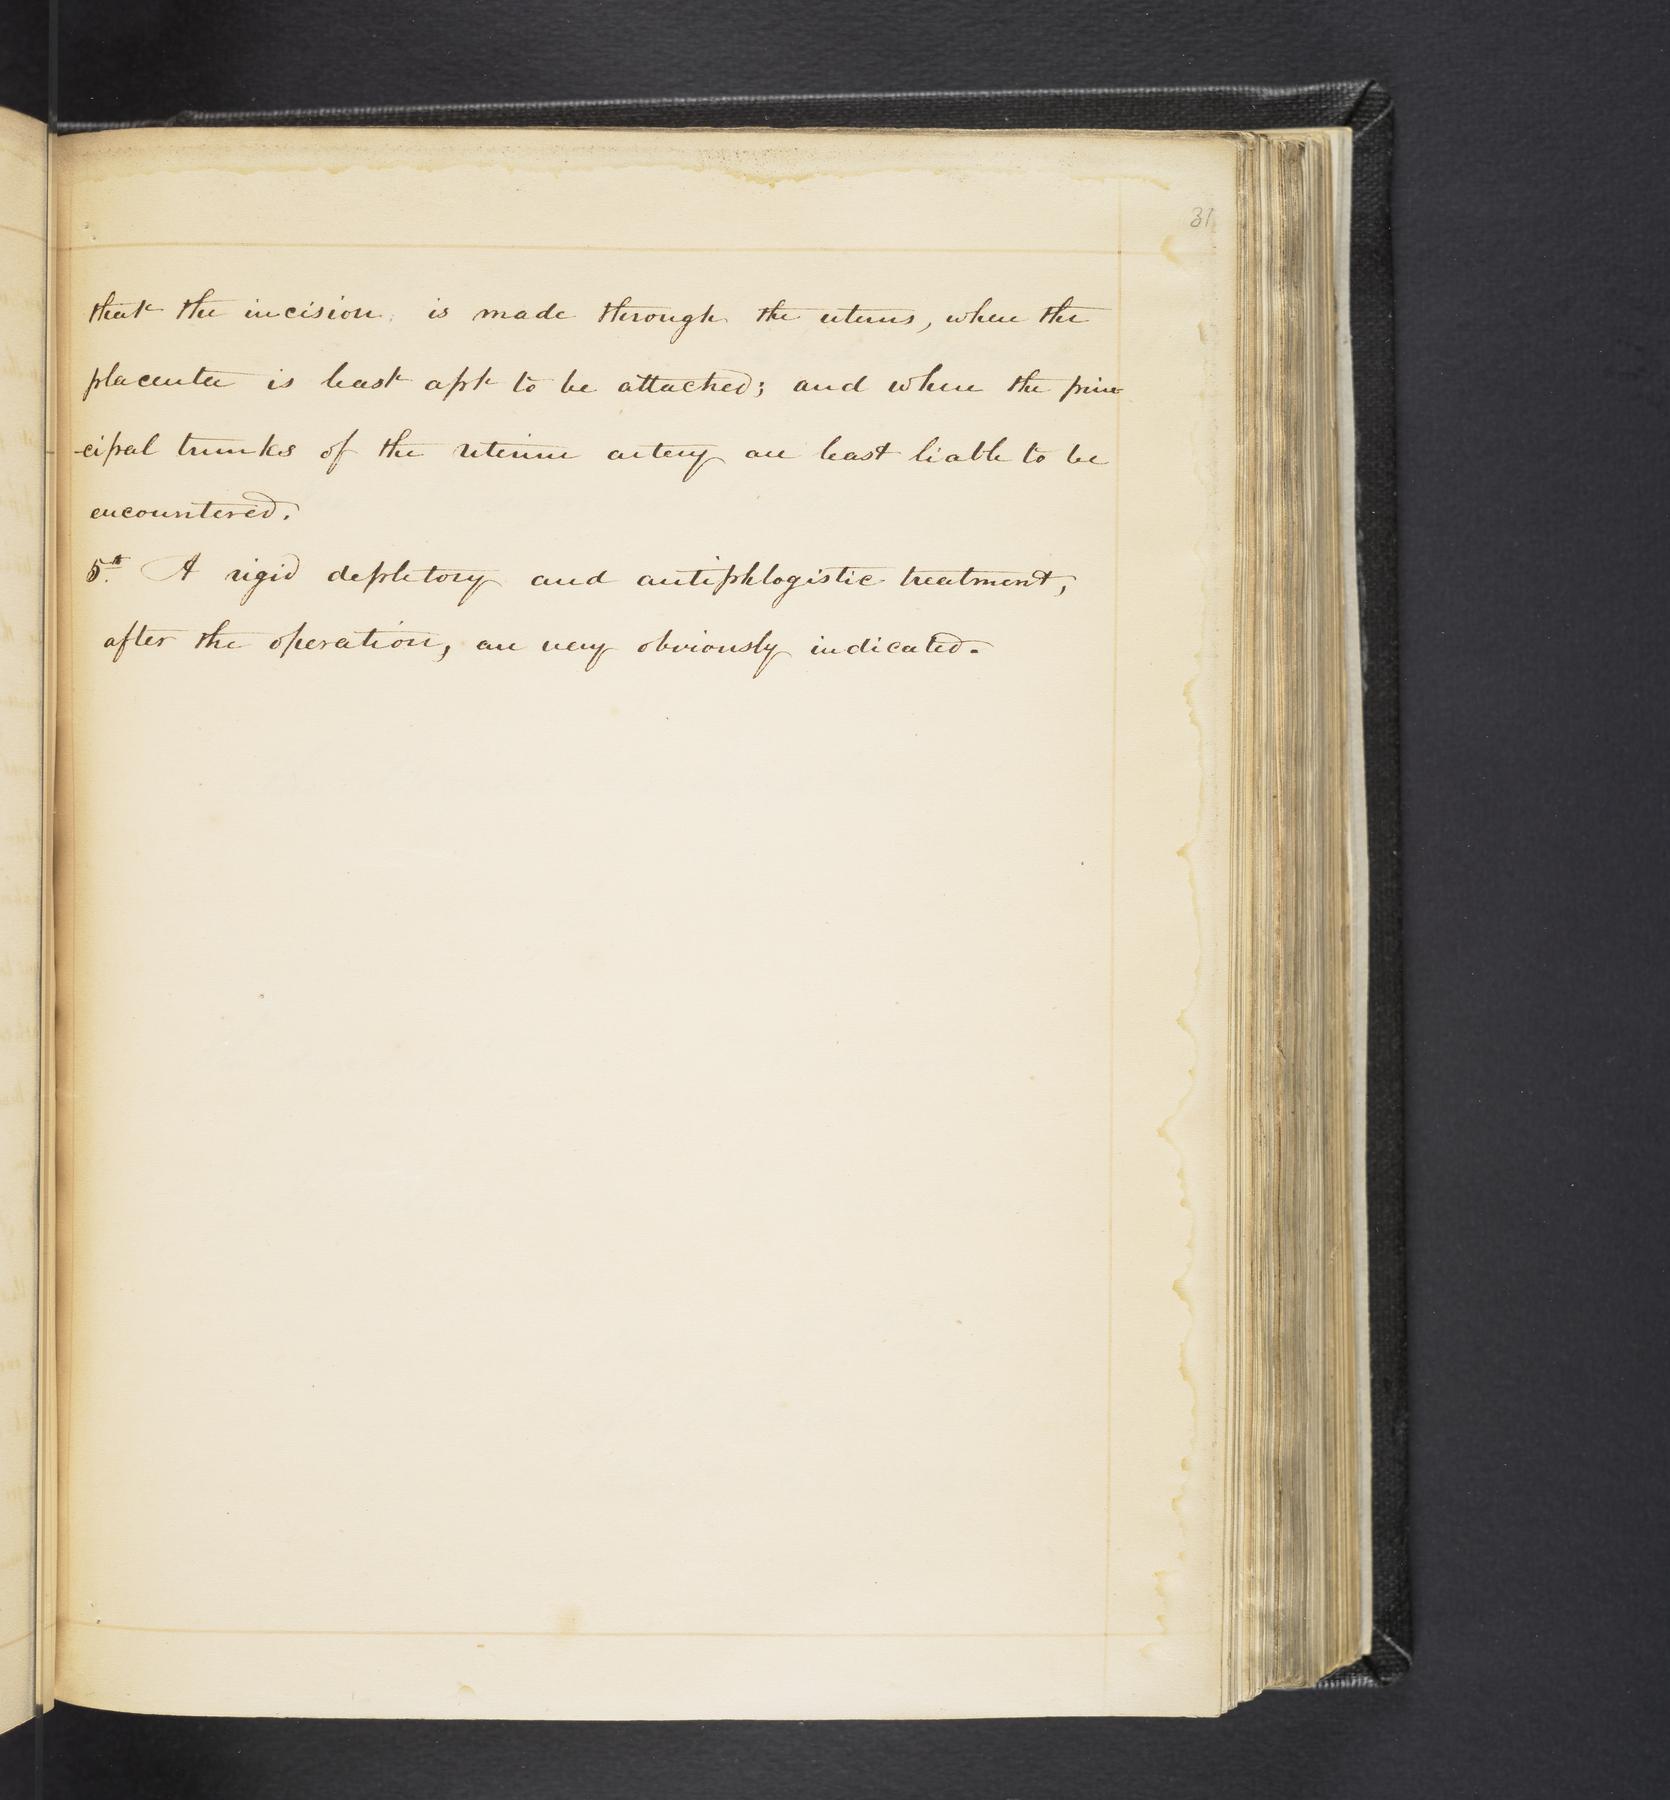 31
that the incision is made through the uterus, where the
placenta is least apt to be attached; and where the prin
-cipal trunks of the uterine artery are least liable to be
encountered.
5th. A rigid depletory and antiphlogistic treatment,
after the operation, are very obviously indicated.